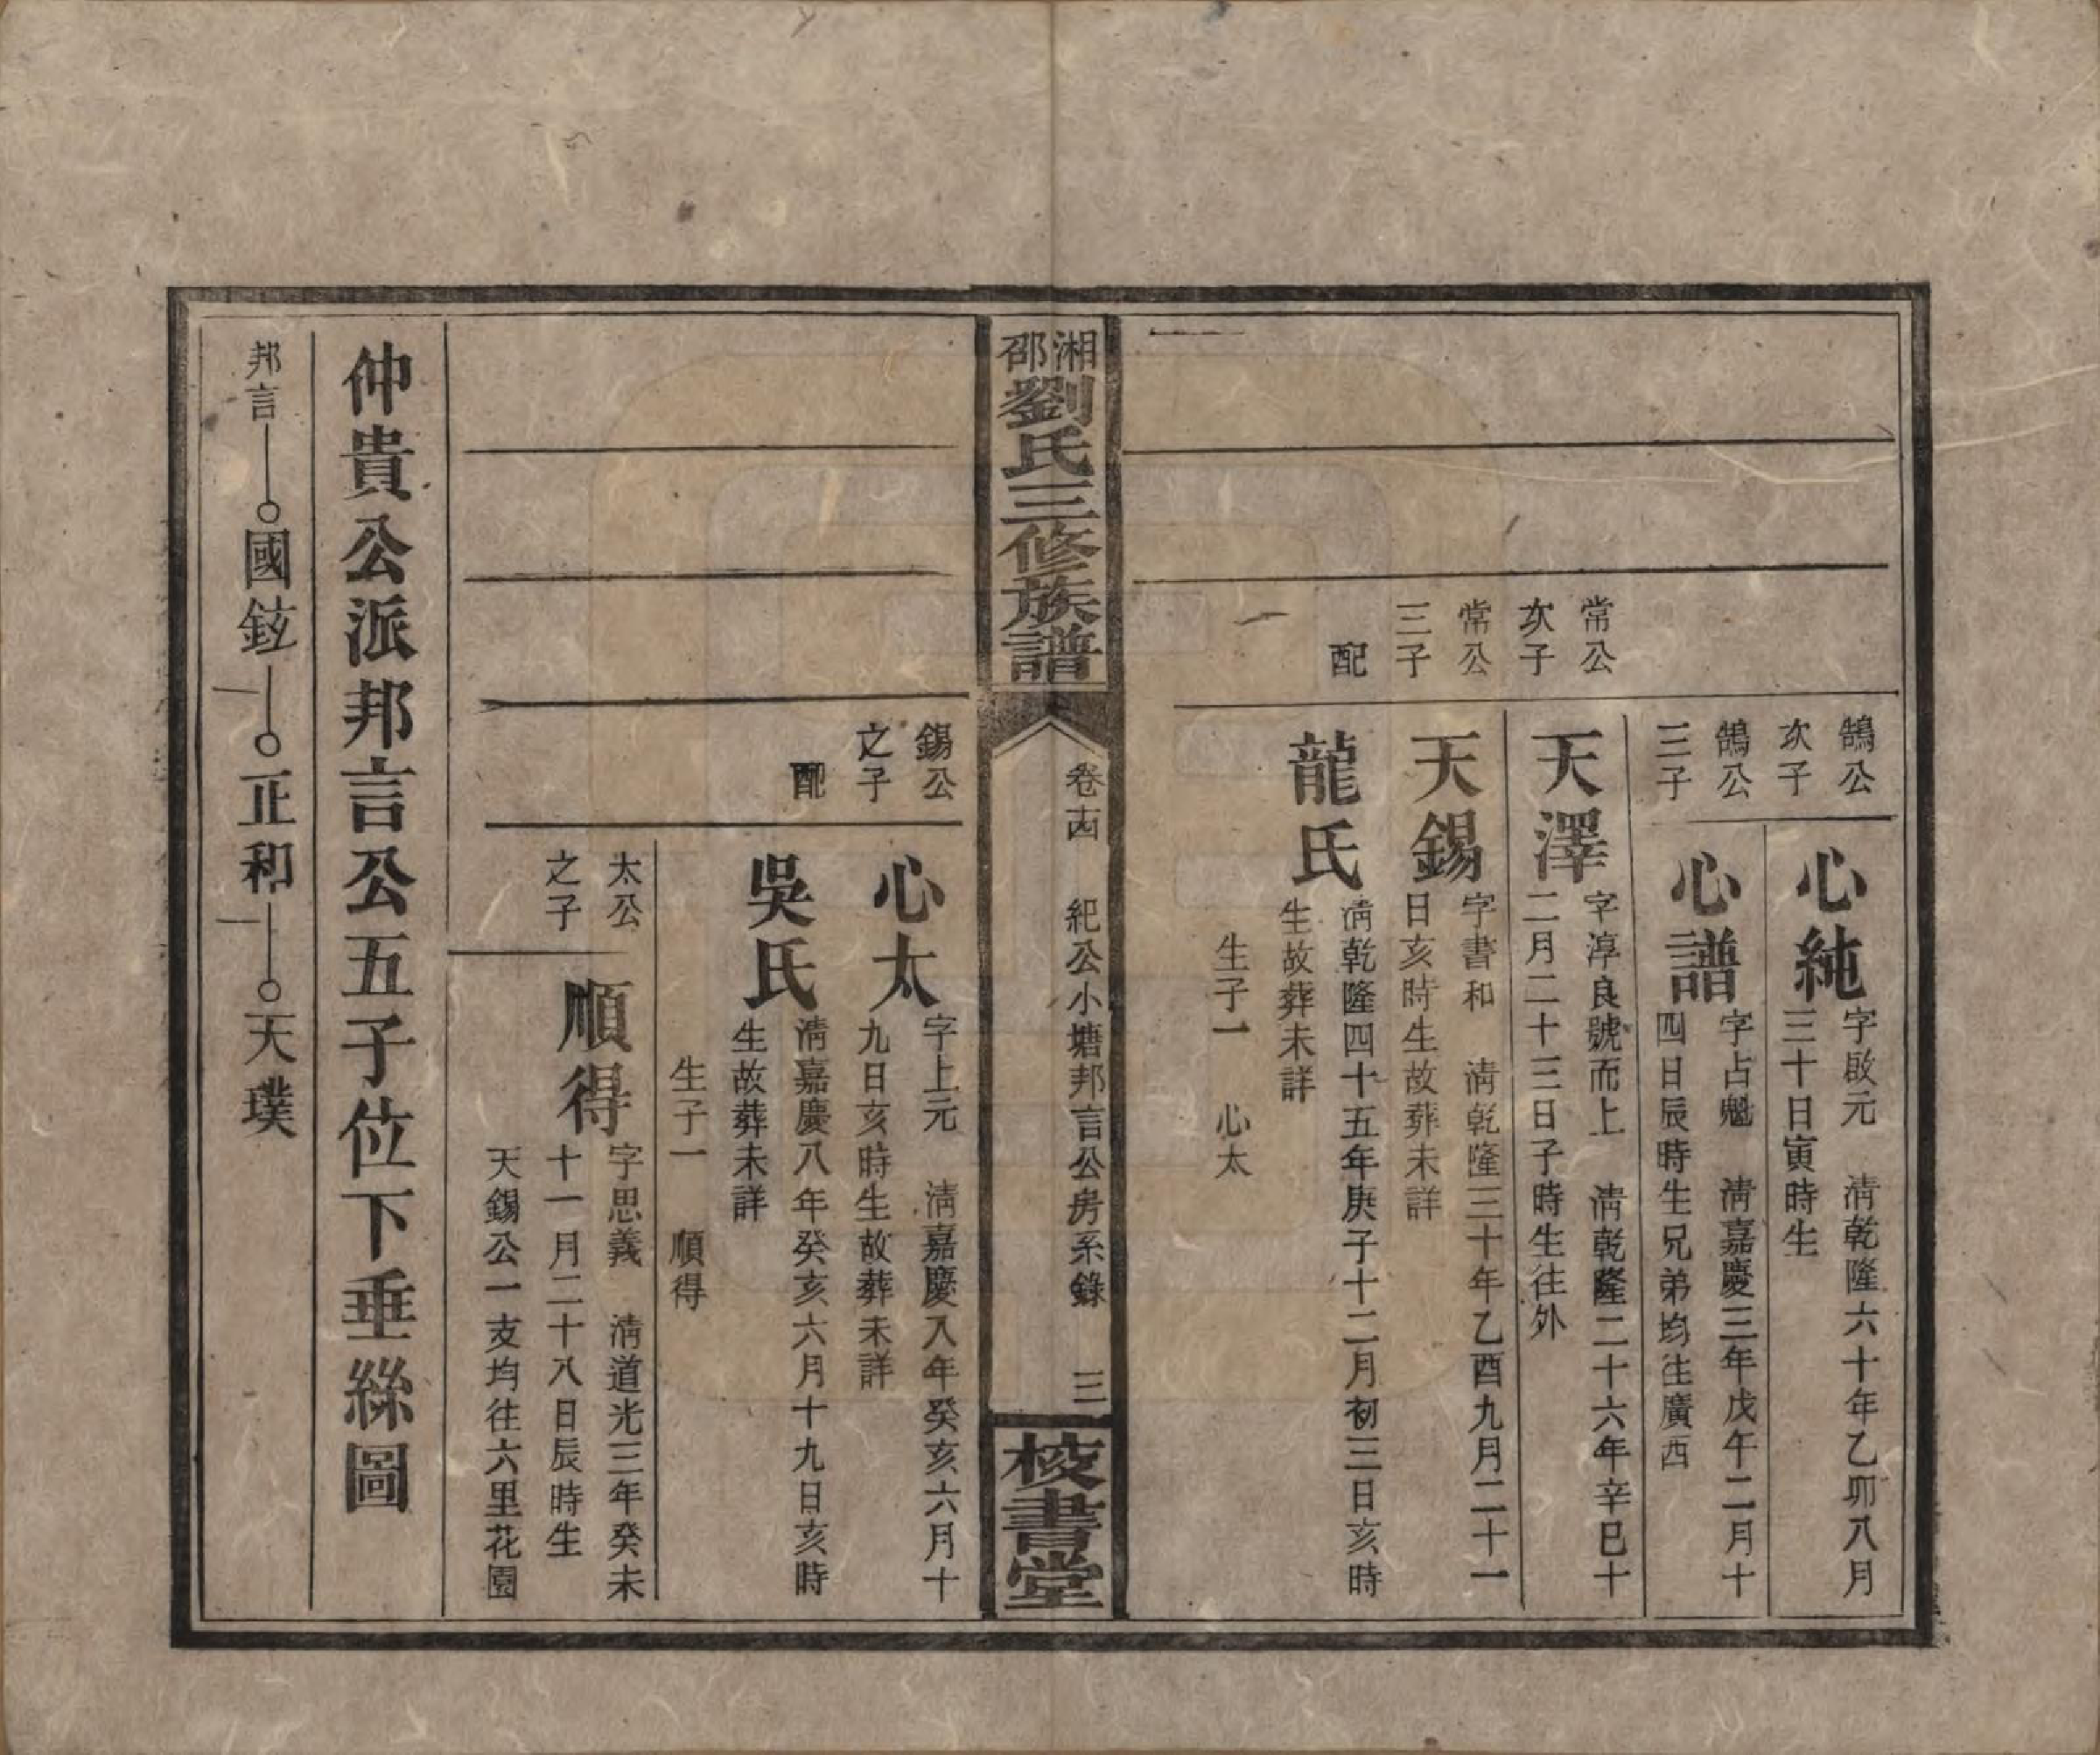 鵠公
次子
心純
字啟元　清乾隆六十年乙卯八月
三十日寅時生
鵠公
三子
心譜
字占魁　清嘉慶三年戊午二月十
四日辰時生兄弟均往廣西
常公
次子
天澤
字淳良號而上　清乾隆二十六年辛巳十
二月二十三日子時生往外
常公
三子
天錫
字書和　清乾隆三十年乙酉九月二十一
日亥時生故葬未詳
配
龍氏
清乾隆四十五年庚子十二月初三日亥時
生故葬未詳
生子一　心太
湘邵劉氏三修族譜
卷十四　紀公小塘邦言公房系錄　三
校書堂
錫公
之子
心太
字上元　清嘉慶八年癸亥六月十
九日亥時生故葬未詳
配
吳氏
清嘉慶八年癸亥六月十九日亥時
生故葬未詳
生子一　順得
太公
之子
順得
字思義　清道光三年癸未
十一月二十八日辰時生
天錫公一支均往六里花園
仲貴公派邦言公五子位下垂絲圖
邦言　國鉉　正和　天璞